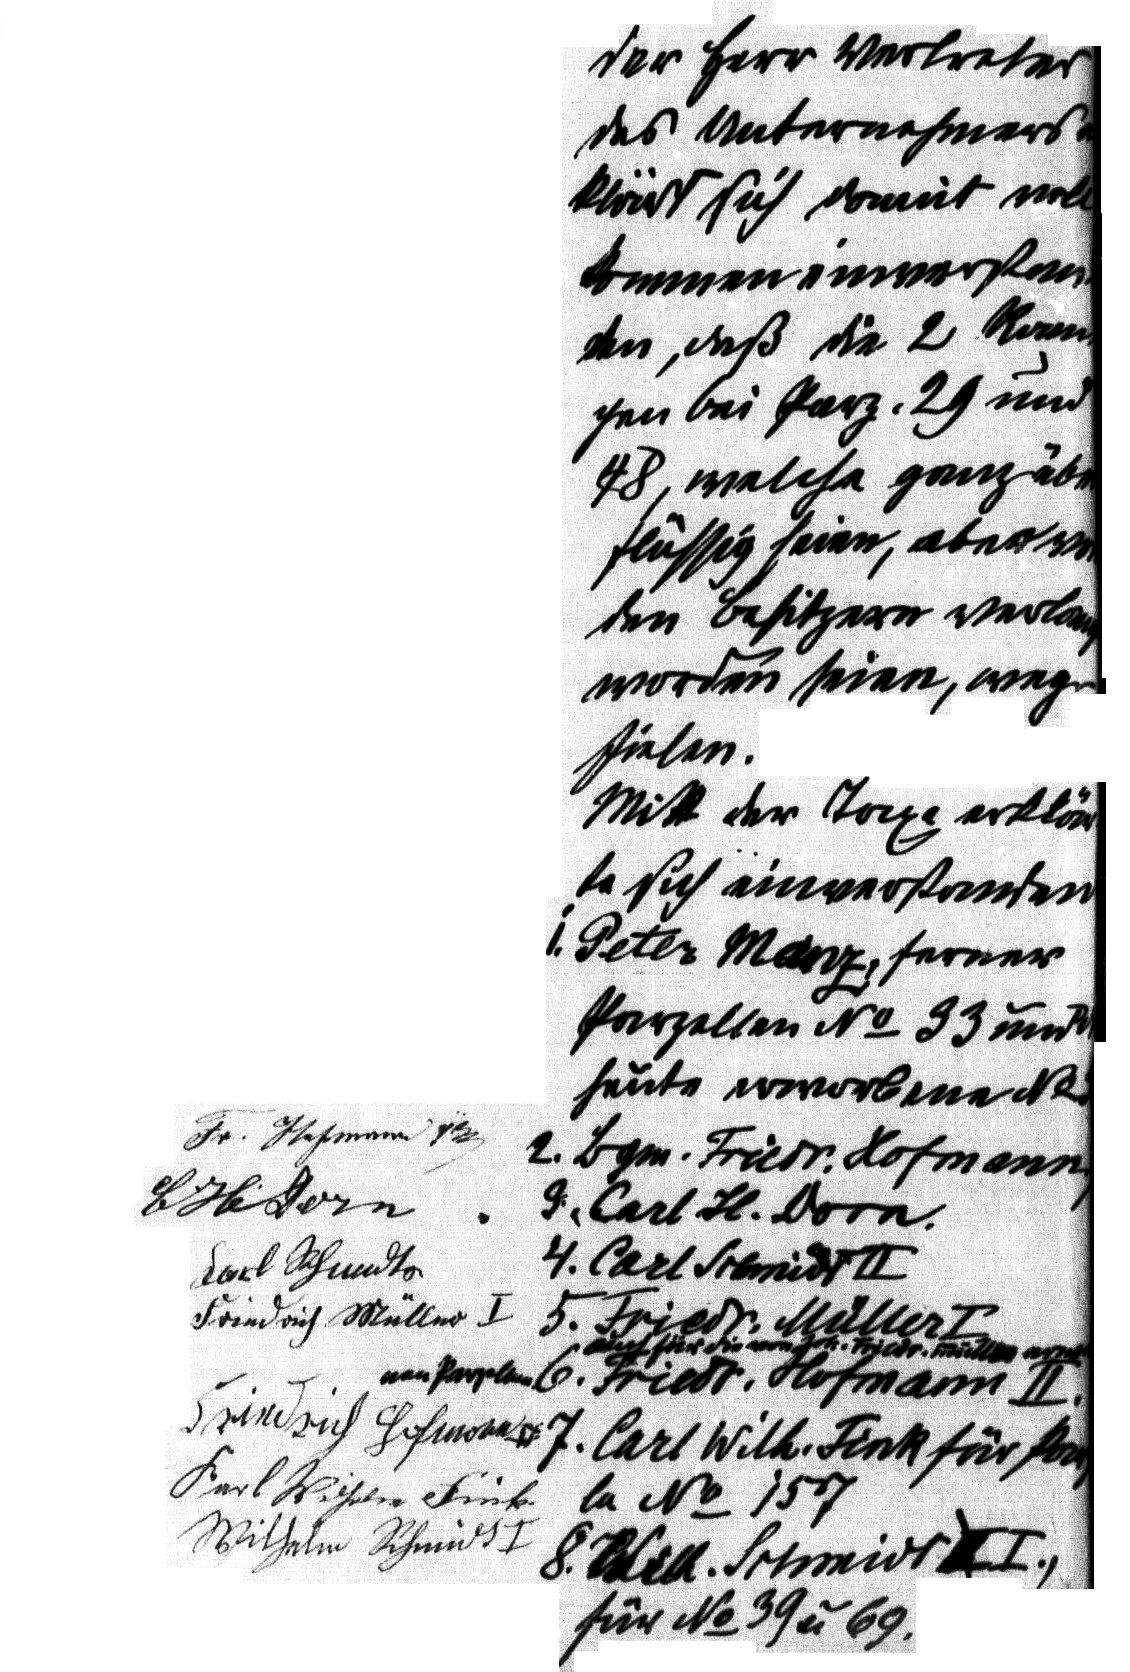 der Herr Vertreter
des Unternehmers
klärt sich damit voll
kommen einverstan
den, daß die 2 
gen bei Parz. 29 und
48, welche ganz über
flüssig seien, aber von
den Besitzern verlang
worden seien, weg
fielen.
Mitt der Taxe erklär
te sich einverstanden
1. Peter Manz, ferner
Parzellen No 33 und
heute erworbene No
Fr. Hofmann
2. Bgm. Friedr. Hofmann,
C H Dorn
3. Carl H. Dorn.
Carl Schmidt
4. Carl Schmidt II
Friedrich Müller I
5. Friedr. Müller I
auch für die von Friedr. Müller
nen Parzellen
6. Friedr. Hofmann II.
Friedrich Hofmann II
7. Carl Wilh. Fink für Par
Karl Wilhelm Fink
le No 157
Wilhelm Schmidt I
8. Wilh. Schmidt I.,
für No 39 u 69.